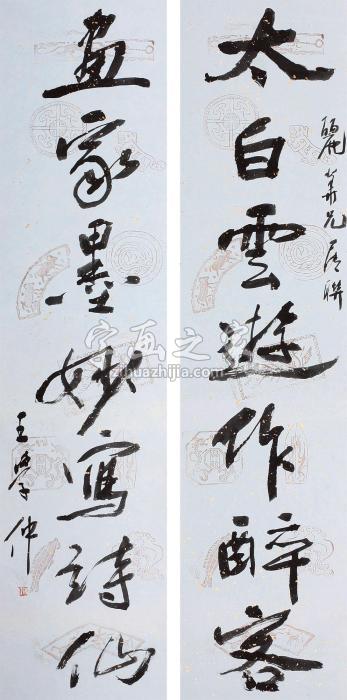 太白雲遊作醉客
畫家墨妙寫詩仙
王學仲
字画之家
zihuazhijia.com